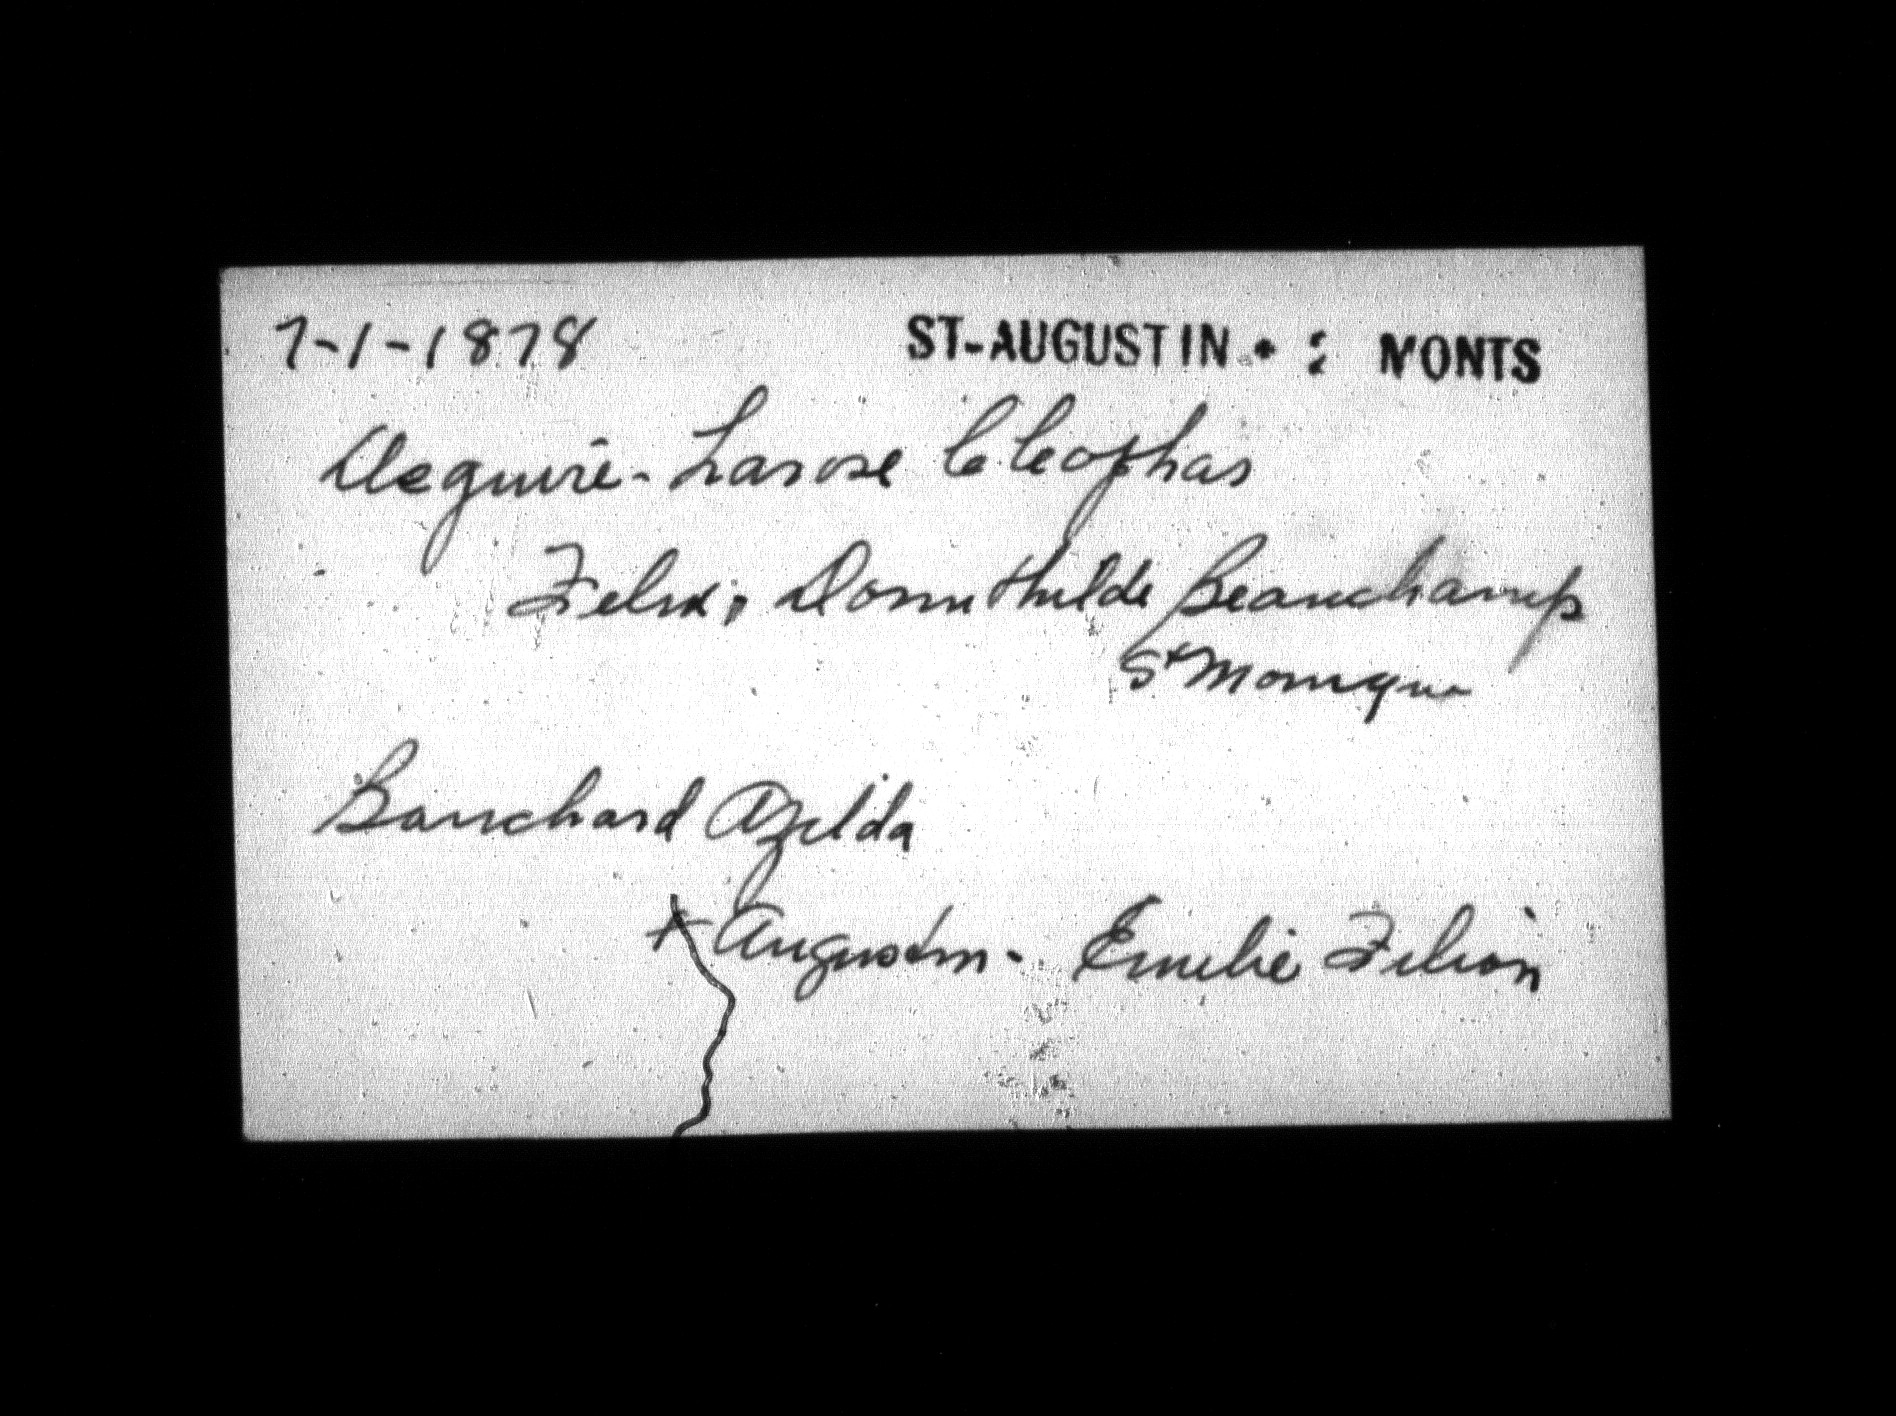 7-1-1878 ST-AUGUSTIN • 2 MONTS
Deguire-Larose Cleophas
Felix, Domithilde Beauchamp
St Monique
Bouchard Azilda
+ Augustin - Emelie Filion